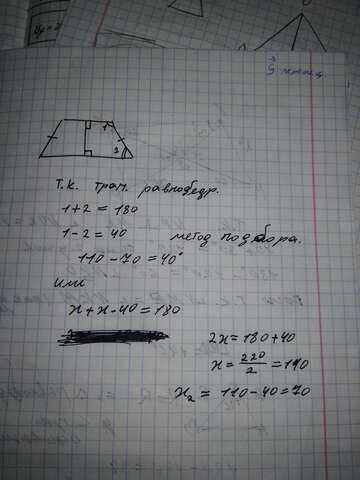 1
2
т.к. трап. равнобедр.
1+2 = 180
1-2 = 40 метод подбора.
110 - 70 = 40°
или
x + x - 40 = 180
2x = 180 + 40
x = 220/2 = 110
x₂ = 110 - 40 = 70